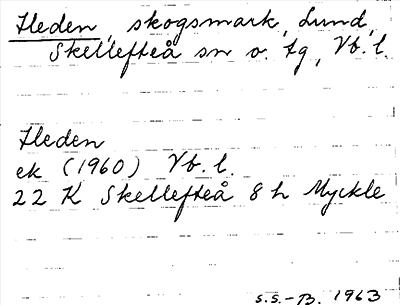 Heden, skogsmark, Lund,
Skellefteå sn o. tg, Vb. l.
Heden
ek (1960) Vb. l.
22 K Skellefteå 8 h Myckle
S.S.-B. 1963